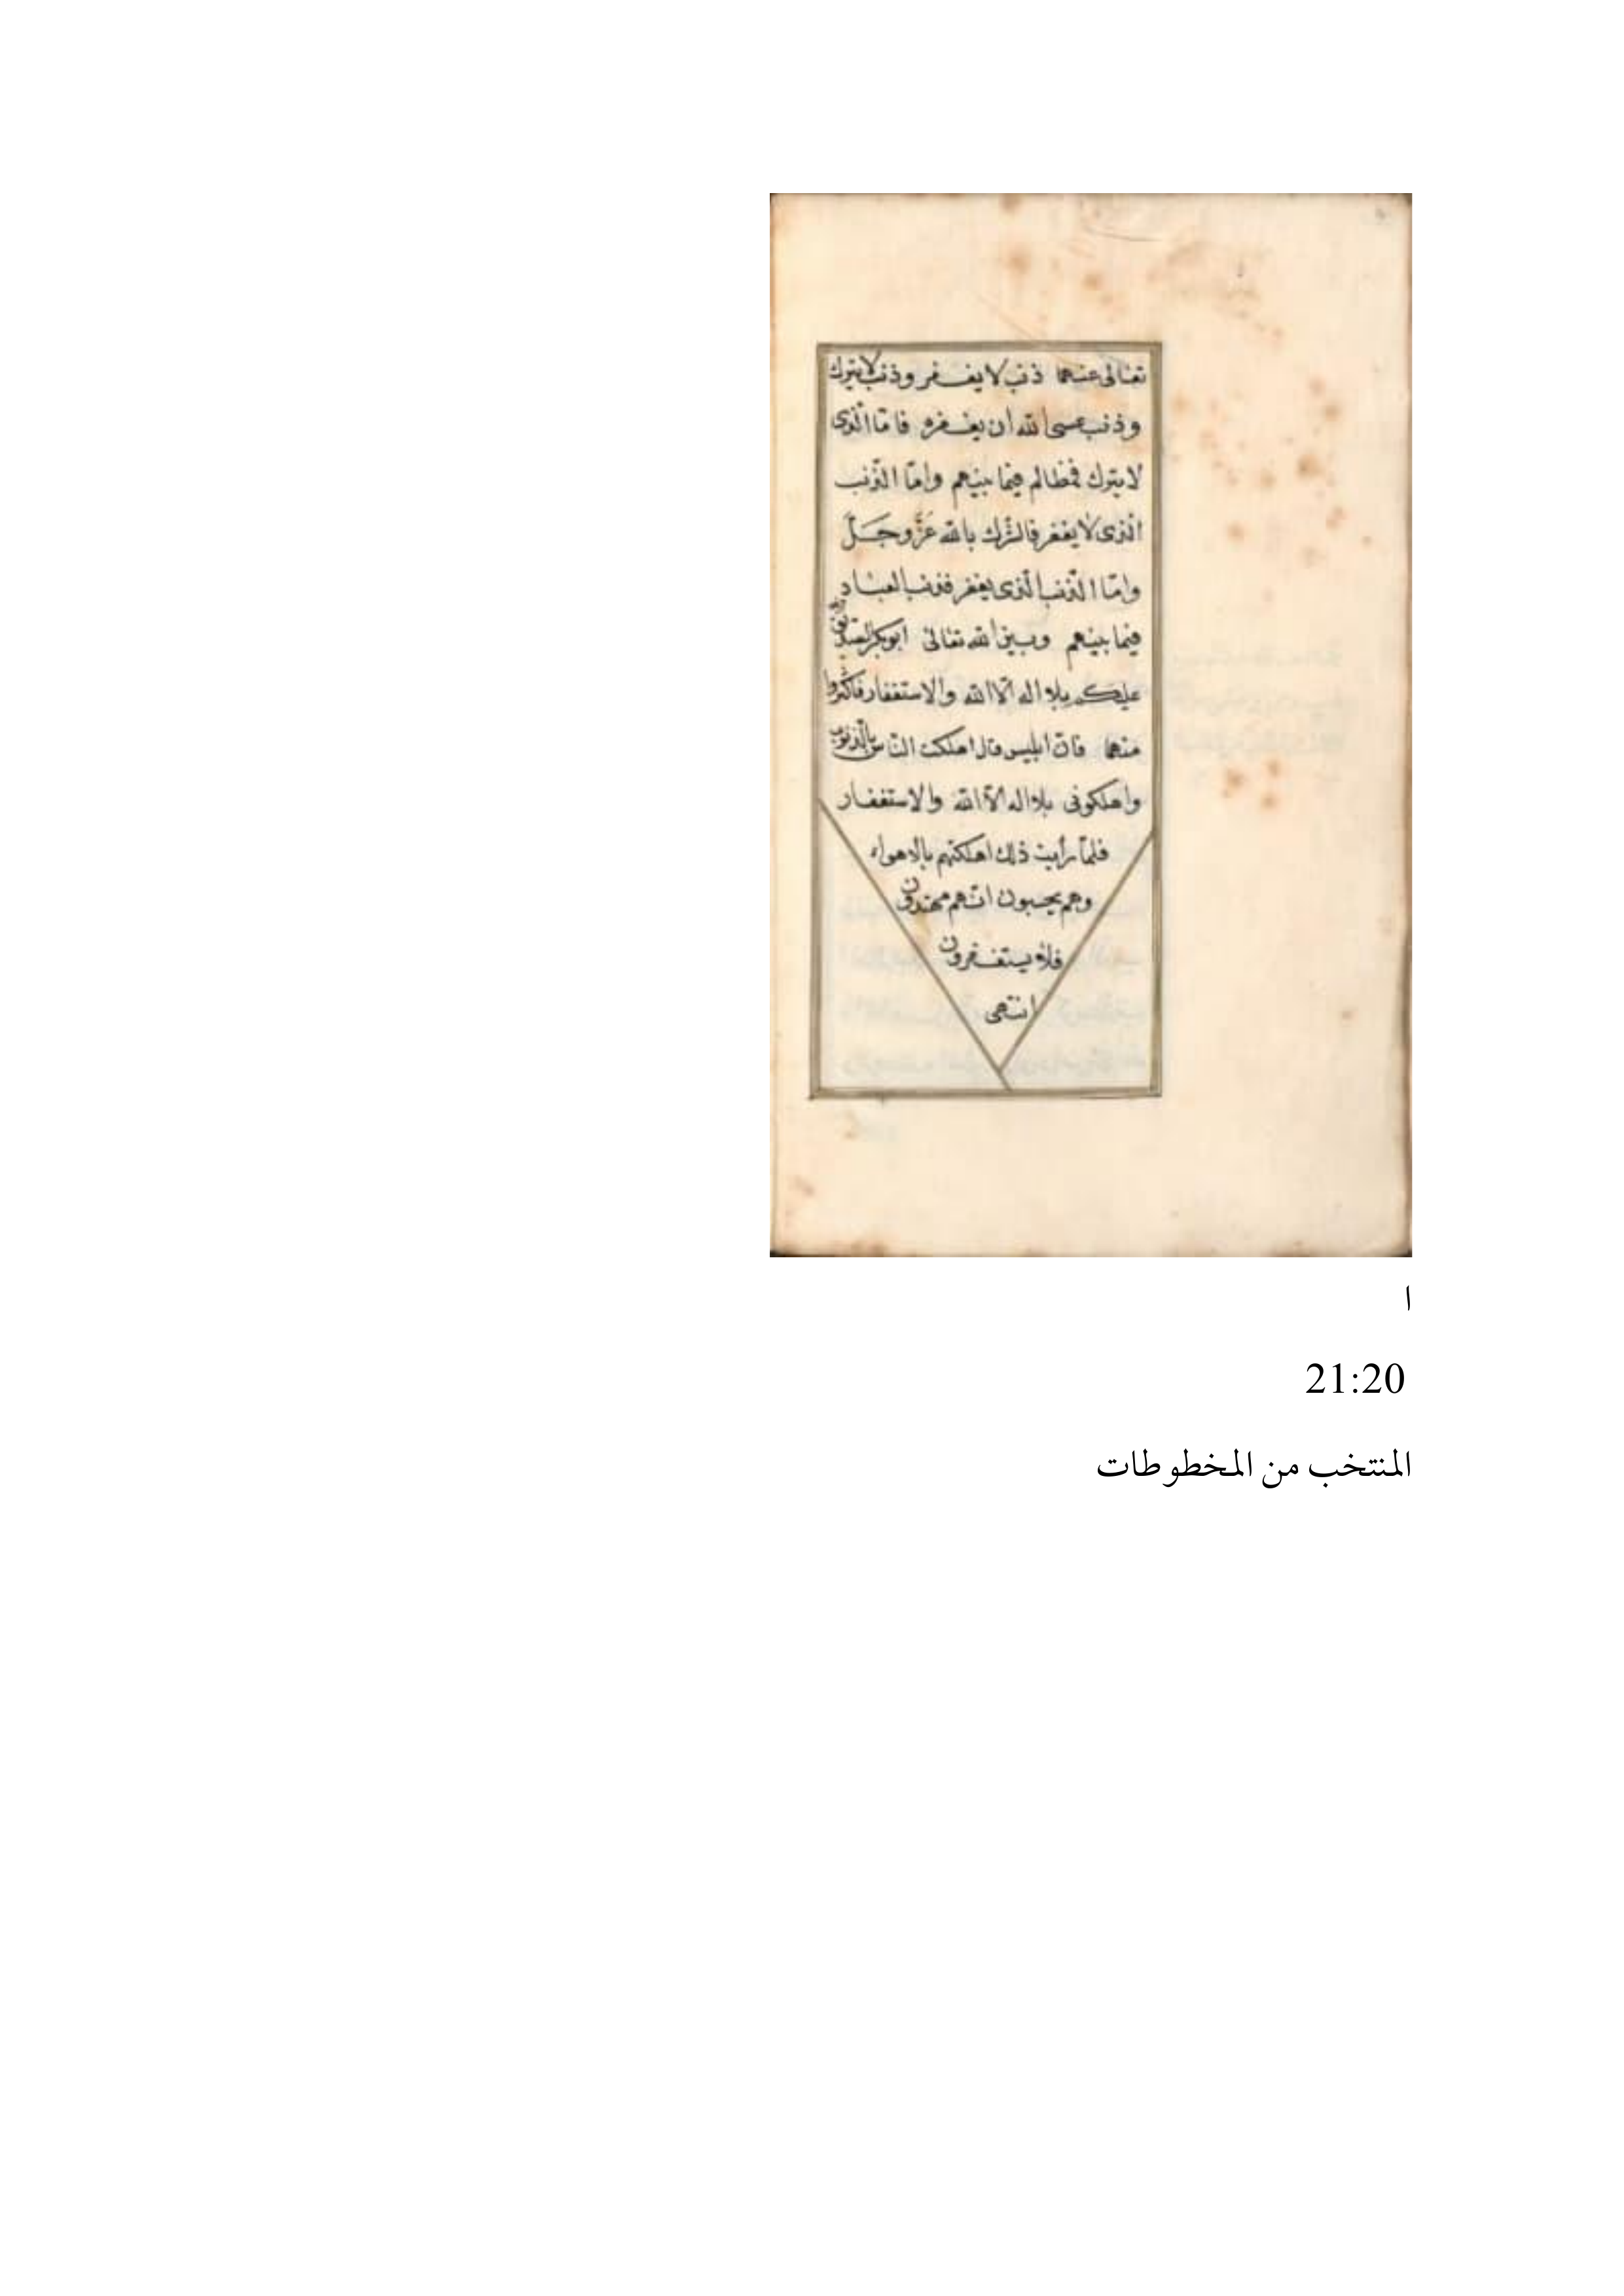 تعالى عنهما ذنب لا يغفر وذنب لا يترك
وذنب عسى الله ان يغفره فامّا الّذى
لا يترك فمظالم فيما بينهم وامّا الذّنب
الّذى لا يغفر فالشّرك بالله عَزَّ وجَلَّ
وامّا الذّنب الّذى يغفر فذنب العباد
فيما بينهم وبين الله تعالى ابوبكر الصّديق
عليكم بلا اله الّا الله والاستغفار فاكثروا
منهما فانّ ابليس قال اهلكت النّاس بالذّنوب
واهلكونى بلا اله الّا الله والاستغفار
فلمّا رأيت ذلك اهلكتهم بالاهواء
وهم يحسبون انّهم مهتدون
فلا يستغفرون
انتهى
ا
21:20
المنتخب من المخطوطات